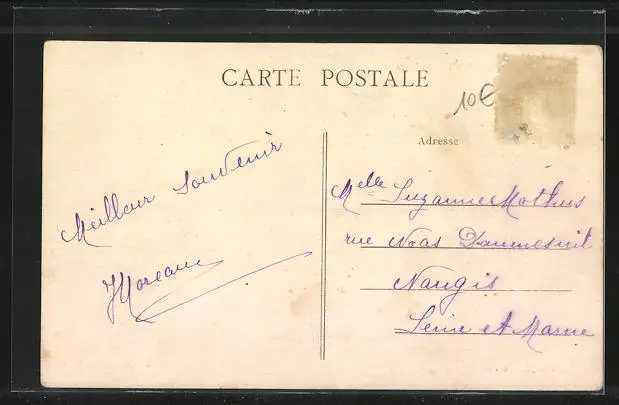 CARTE POSTALE
10€
Adresse
Meilleur Souvenir
Moreau
Melle Suzanne Mothus
rue Noas Daumesnil
Nangis
Seine et Marne